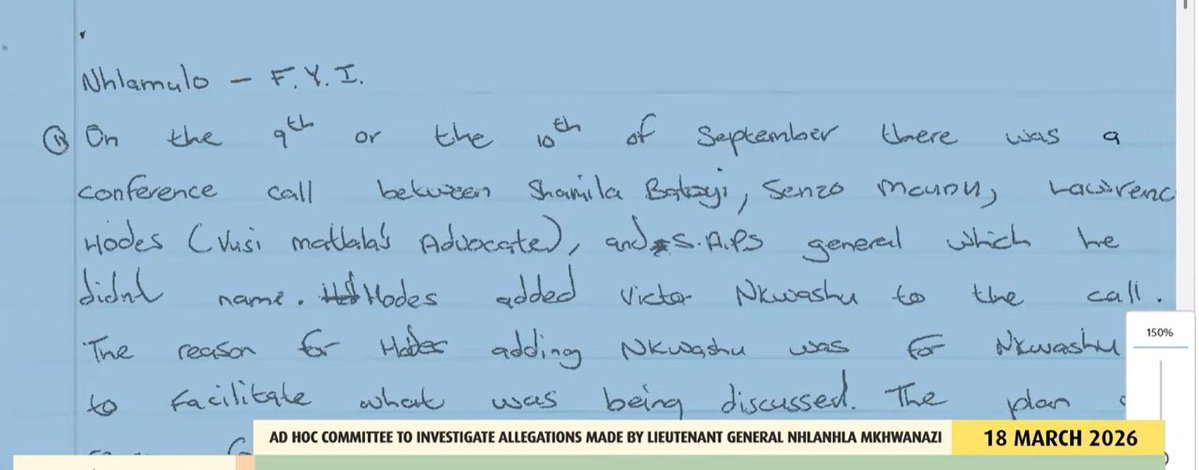 Nhlamulo - F.Y.I.
On the 9th or the 10th of September there was a
conference call between Shamila Batoyi, Senzo Mcunu, Lawrenc
Hodes (Vusi matlala's Advocate), and S.A.P.S general which he
didnt name. Hodes added Victor Nkwashu to the call.
The reason for Hodes adding Nkwashu was for Nkwashu
to facilitate what was being discussed. The plan
150%
AD HOC COMMITTEE TO INVESTIGATE ALLEGATIONS MADE BY LIEUTENANT GENERAL NHLANHLA MKHWANAZI
18 MARCH 2026